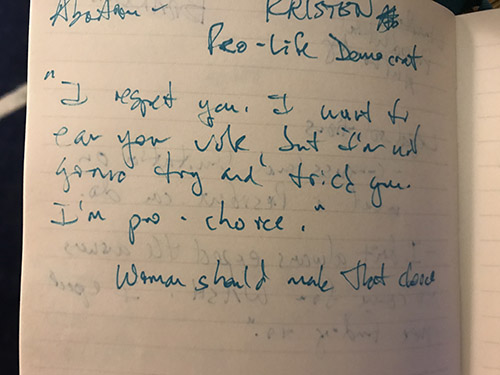 Abortion - KRISTEN
Pro-Life Democrat
"I respect you. I want to
earn your vote, but I'm not
gonna try and trick you.
I'm pro-choice."
Woman should make that choice